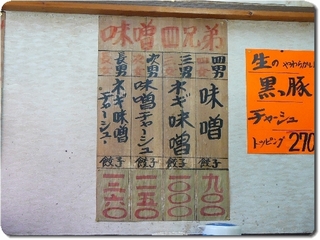 味噌四兄弟
四男
味噌
餃子
九〇〇
三男
ネギ味噌
餃子
一〇〇〇
次男
味噌チャーシュー
餃子
一二五〇
長男
ネギ味噌チャーシュー
餃子
一三六〇
生の やわらかい
黒豚
チャーシュー
トッピング 270